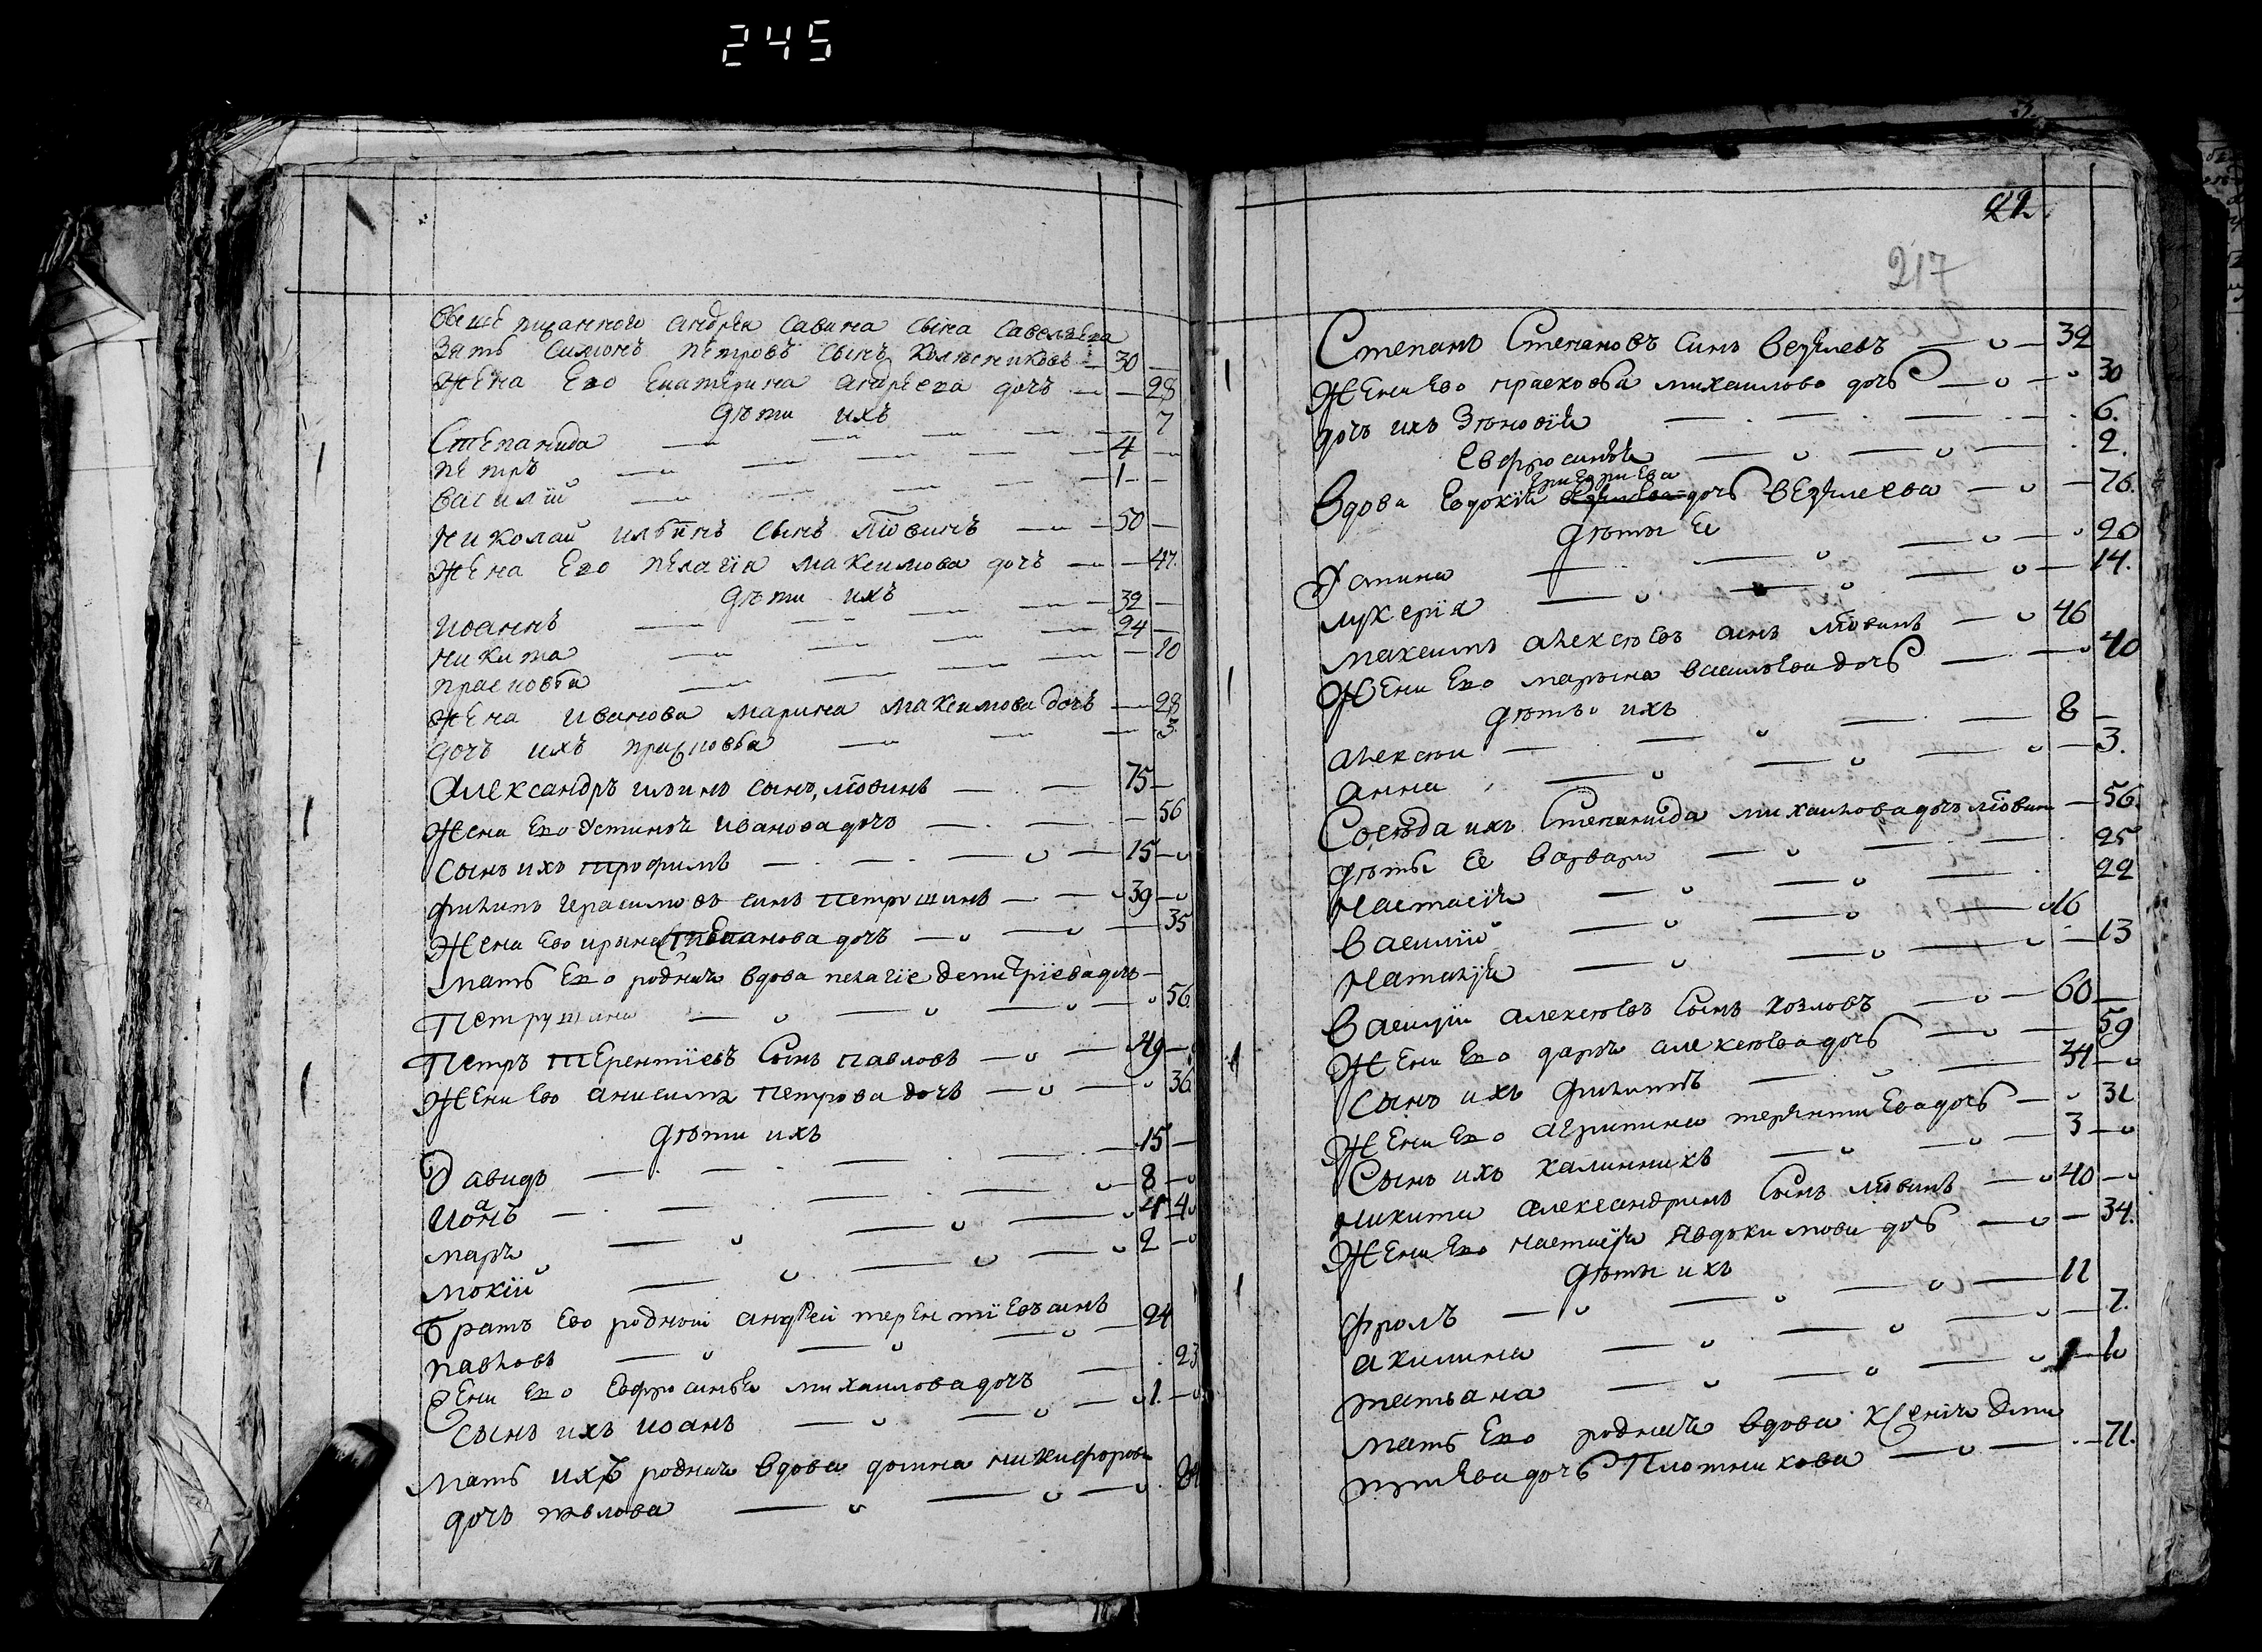 245
выше писанного андрея савина сына савельева
Зять симонъ петровъ сынъ колѣсниковъ 30
жена Его Екатерина андрѣева дочъ 28
дѣти ихъ
Степанида 7
петръ 4
василій 1
николай ильинъ сынъ 50
жена Его пелагія максимова дочъ 47
дѣти ихъ
иоаннъ 32
никита 24
прасковья 10
жена иванова марина максимова дочъ 28
дочъ ихъ прасковья 3
Александръ ильинъ сынъ 75
жена Его Устинья иванова дочъ 56
сынъ ихъ трофимъ 15
филипъ герасимовъ сынъ петрушинъ 39
жена Ево ирина степанова дочъ 35
мать Его родная вдова пелагіе деми трiева дочъ
Петрушина 56
Петръ терентіевъ сынъ павловъ 49
жена Ево анисимья петрова дочъ 36
дѣти ихъ
давидъ 15
Иоанъ 8
марья 4
мокій 2
братъ Ево родный андрей терентіевъ сынъ
павловъ 24
жена Его Евфросинья михаилова дочъ 23
сынъ ихъ иоанъ 1
мать ихъ родная вдова домна никифорова
дочъ
42
217
Степанъ Степановъ синъ 32
жена Ево прасковья михаилова дочь 30
дочъ ихъ Зѣновія 6.
Евфросинья 2.
григориева
вдова Евдокія дочь 76.
дѣты Ее
фатина 20
лукерія 14.
максимъ алексѣевъ синъ 46
жена Его марына васильева дочь 40
дѣты ихъ
алексѣи 8
анна 3.
Сосѣда ихъ Степанида михаилова дочъ 56
дѣты Ее варвара 25
настасія 22
василій 16
наталія 13
василій алексѣевъ сынъ козловъ 60
жена Его дарья алексѣева дочь 59
сынъ ихъ филиппъ 34
жена Его агрипина терянтиева дочь 31
сынъ ихъ калинникъ 3
никита александринъ сынъ 40
жена Его настасія Явдокимова дочь 34.
дѣты ихъ
фролъ 11
акилина 7.
татьана 1
мать Его родная вдова ксенія дми
тріева дочь Плотникова 71.